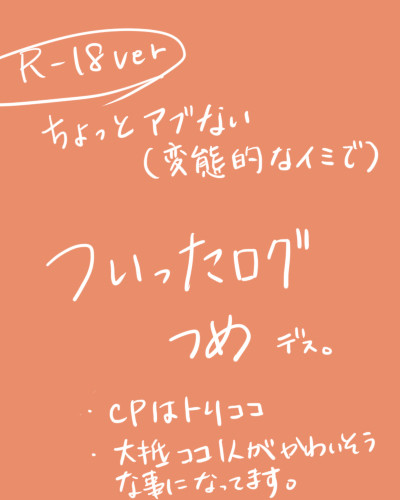 R-18ver
ちょっとアブない
(変態的なイミで)
ついったログ
つめ デス。
・CPはトリココ
・大抵ココ1人がかわいそう
な事になってます。